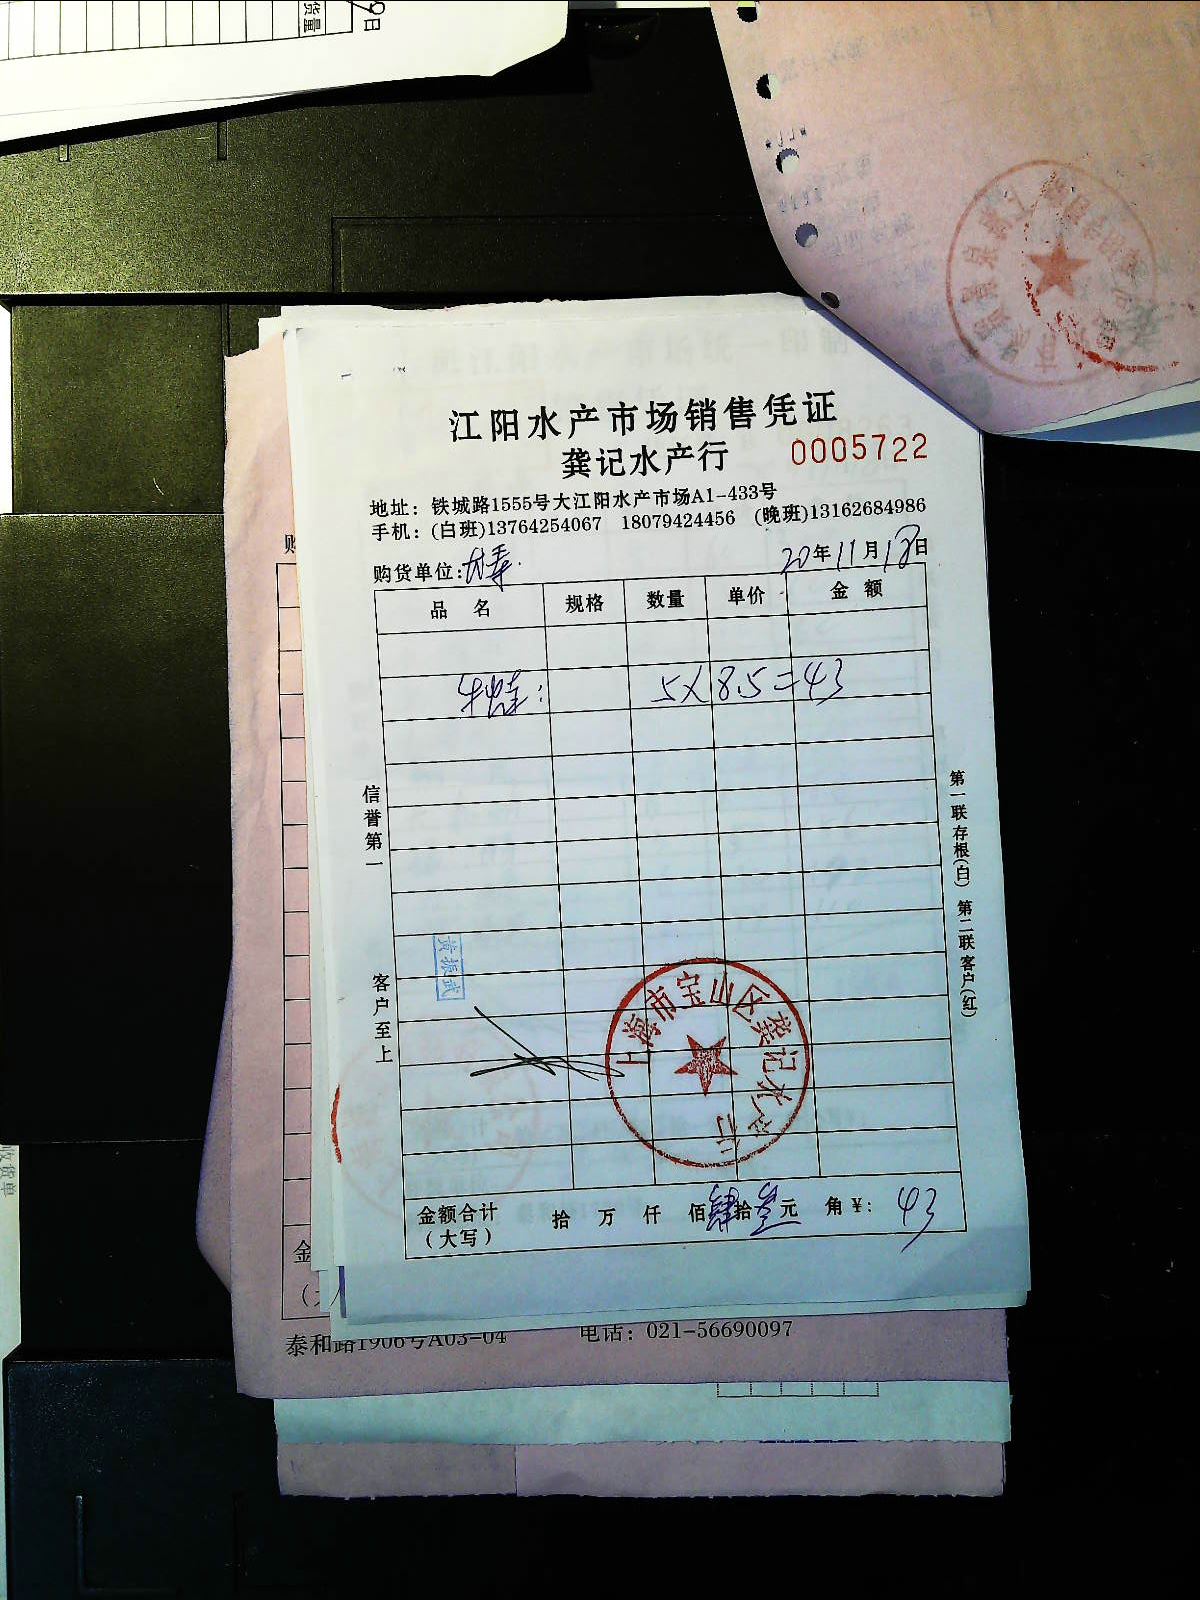 货量
9日
江阳水产市场销售凭证
龚记水产行 0005722
地址：铁城路1555号大江阳水产市场A1-433号
手机：(白班)13764254067 18079424456 (晚班)13162684986
购货单位: 20年11月18日
品名 规格 数量 单价 金额
牛蛙： 5×8.5=43
信誉第一
客户至上
第一联存根(白) 第二联客户(红)
黄振武
上海市宝山区龚记水产行
金额合计（大写） 拾 万 仟 佰肆拾叁元 角 ¥: 43
购
金
泰和路1906号A03-04 电话：021-56690097
收货单